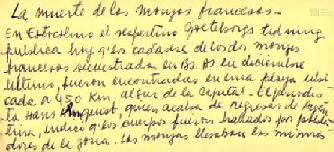 La muerte de las monjas francesas.-
En Estocolmo el vespertino Goeteborgs Tidning
publica hoy q' los cadáveres de las dos monjas
francesas secuestradas en Bs. As en diciembre
último, fueron encontrados en una playa ubi
cada a 450 Km. al sur de la Capital. El periodis
ta Hans, quien acaba de regresar de Argen
tina, indicó q' los cuerpos fueron hallados por pobla
dores de la zona. Las monjas llevaban las mismas